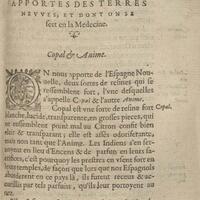 APPORTES DES TERRES
NEVVES, ET DONT ON SE
sert en la Medecine.
Copal & Anime.
ON nous apporte de l'Espagne Nou-
uelle, deux sortes de resines qui se
ressemblent fort, l'vne desquelles
s'appelle Copal & l'autre Anime.
Copal est vne sorte de resine fort
Copal.
blanche, lucide, transparente, en grosses pieces, qui
ne ressemblent point mal au Citron confit bien
clair & transparant; elle est assés odoriferente,
mais non tant que l'Anime. Les Indiens s'en ser-
uoyent en lieu d'Encens & de parfun en leurs sa-
crifices, c'est pourquoy les prestres en vsent fort en
leurs temples, de façon que lors que nos Espagnols
aborderent en ce païs là, ils furent receus & ac-
cueillis par tels parfuns, qu'ils leur portoyent au